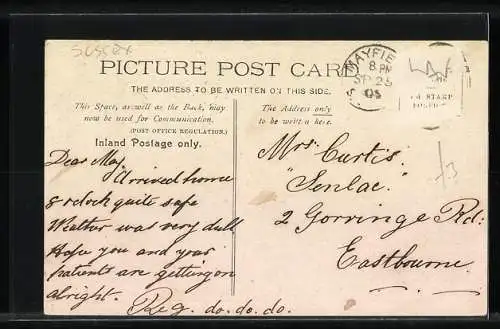 SUSSEX
PICTURE POST CARD
THE ADDRESS TO BE WRITTEN ON THIS SIDE.
This Space, as well as the Back, may
now be used for Communication.
(POST OFFICE REGULATION.)
Inland Postage only.
The Address only
to be written here.
MAYFIE
8 PM
SP 25
05
STAMP
Dear May
Arrived home
8 o'clock quite safe
Weather was very dull
Hope you and your
patients are getting on
alright.
Reg. do. do. do.
Mrs Curtis.
"Senlac"
2 Gorringe Rd:
Eastbourne.
/3